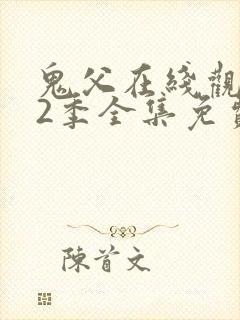 鬼父在綫觀
2季全集免費
陳首文